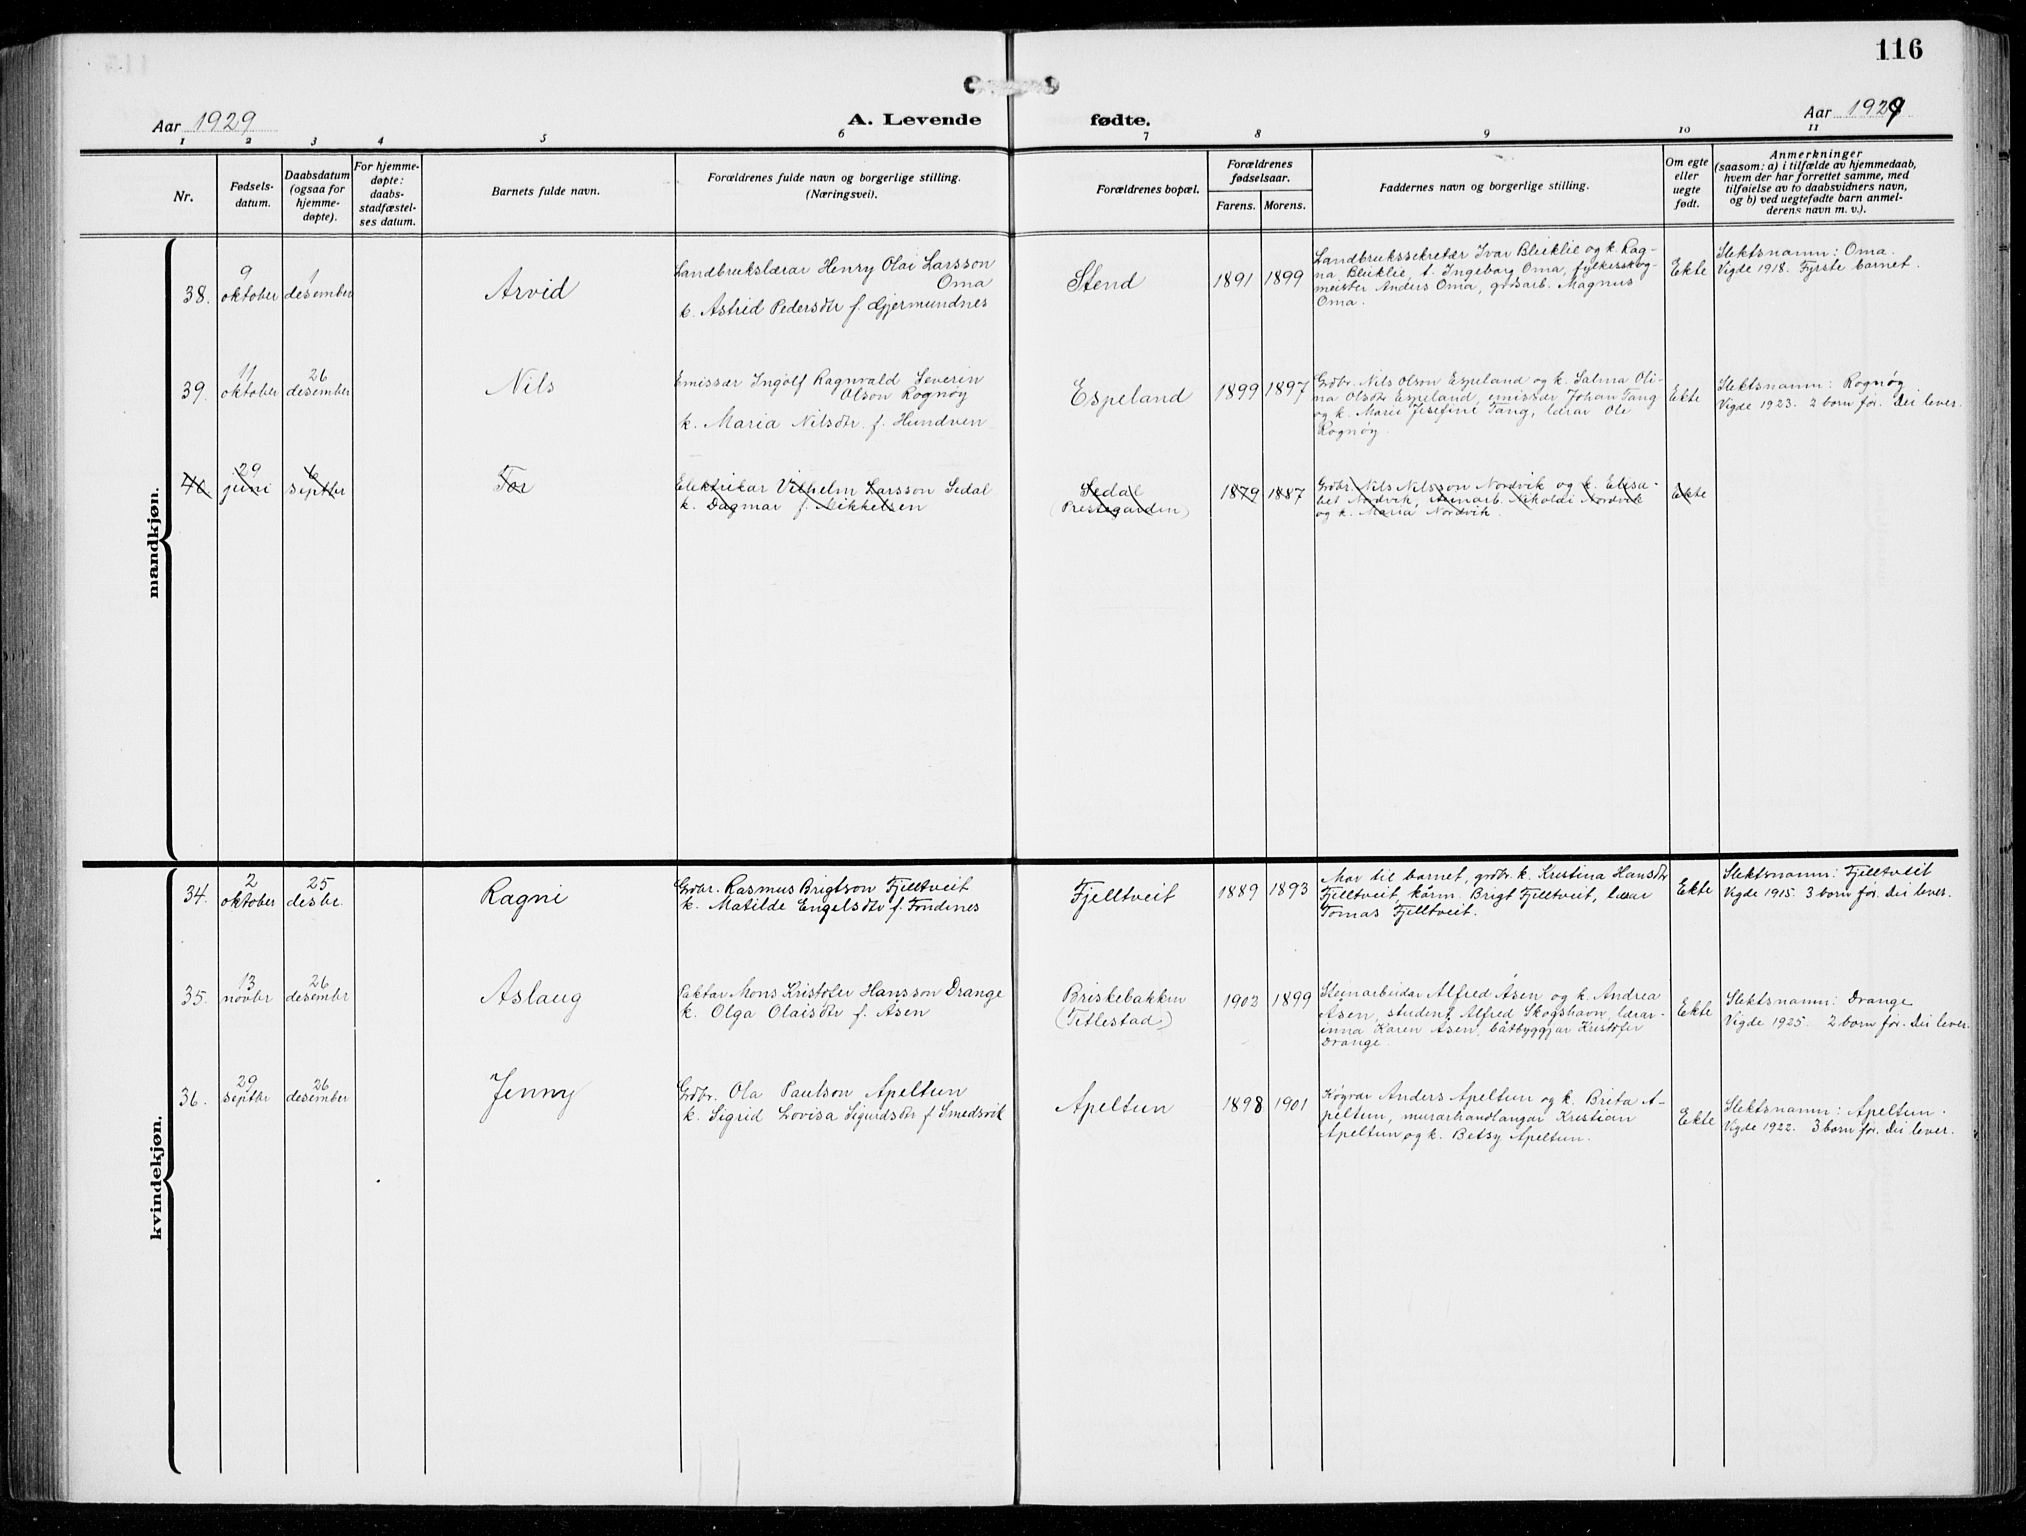 116
Aar 1929
A. Levende fødte.
Aar 1929
1 2 3 4 5 6 7 8 9 10 11
Nr.
Fødsels-
datum.
Daabsdatum
(ogsaa for
hjemme-
døpte).
For hjemme-
døpte:
daabs-
stadfæstel-
ses datum.
Barnets fulde navn.
Forældrenes fulde navn og borgerlige stilling.
(Næringsvei).
Forældrenes bopæl.
Forældrenes
fødselsaar.
Farens. Morens.
Faddernes navn og borgerlige stilling.
Om egte
eller
uegte
født.
Anmerkninger
(saasom: a) i tilfælde av hjemmedaab,
hvem der har forrettet samme, med
tilføielse av to daabsvidners navn,
og b) ved uegtefødte barn anmel-
derens navn m. v.).
mandkjøn.
38.
9
oktober
1
desember
Arvid
Landbrukslærar Henry Olai Larsson
Oma
k. Astrid Pedersdtr f. Gjermundnes
Stend
1891 1899
Landbrukssekretær Ivar Bleiklie og k. Rag-
na Bleiklie, t. Ingeborg Oma, fylkesskog-
meister Anders Oma, grdsarb. Magnus
Oma.
Ekte
Slektsnamn: Oma.
Vigde 1918. Fyrste barnet.
39.
11
oktober
26
desember
Nils
Emissær Ingolf Ragnvald Severin
Olson Rognøy
k. Maria Nilsdtr. f. Hundven
Espeland
1899 1897
Grdbr. Nils Olson Espeland og k. Salma Oli-
na Olsdtr Espeland, emissær Johan Tang
og k. Marie Josefine Tang, lærar Ole
Rognøy.
Ekte
Slektsnamn: Rognøy
Vigde 1923. 2 born før. Dei lever.
40
29
juni
6
septbr
Tor
Elektrikar Vilhelm Larsson Sedal
k. Dagmar f. Mikkelsen
Sedal
(Prestegarden)
1879 1887
Grdbr. Nils Nilsson Nordvik og k. Elisa-
bet Nordvik, steinarb. Nikolai Nordvik
og k. Maria Nordvik.
Ekte
kvindekjøn.
34.
2
oktober
25
desbr.
Ragni
Grdbr. Rasmus Brigtson Fjelltveit
k. Matilde Engelsdtr f. Fondenes
Fjelltveit
1889 1893
Mor til barnet, grdbr. k. Kristina Hansdtr
Fjelltveit, kårm. Brigt Fjelltveit, lærar
Tomas Fjelltveit.
Ekte
Slektsnamn: Fjelltveit
Vigde 1915. 3 born før. Dei lever.
35.
13
novbr
26
desembr
Aslaug
Paktar Mons Kristofer Hansson Drange
k. Olga Olaisdtr f. Åsen
Briskebakken
(Titlestad)
1902 1899
Steinarbeidar Alfred Åsen og k. Andrea
Åsen, student Alfred Skogshavn, lærar-
inna Karen Åsen, båtbyggjar Kristofer
Drange.
Ekte
Slektsnamn: Drange
Vigde 1925. 2 born før. Dei lever.
36.
29
septbr
26
desember
Jenny
Grdbr. Ola Paulson Apeltun
k. Sigrid Lovisa Sigurdsdtr f Smedsvik
Apeltun
1898 1901
Anders Apeltun og k. Brita A-
peltun, murarhandlangar Kristian
Apeltun og k. Betsy Apeltun.
Ekte
Slektsnamn: Apeltun.
Vigde 1922. 3 born før. Dei lever.